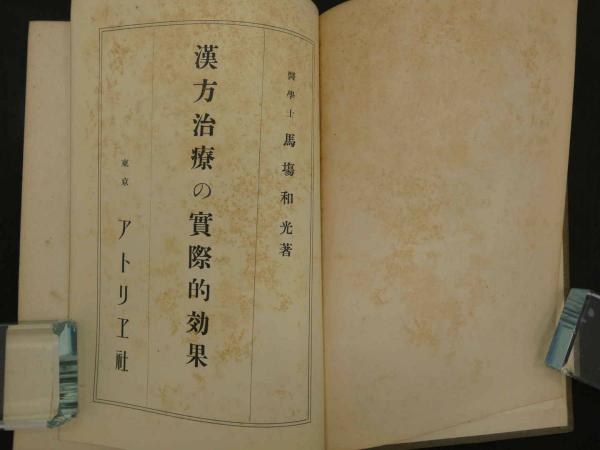 醫學士 馬場和光著
漢方治療の實際的効果
東京 アトリヱ社